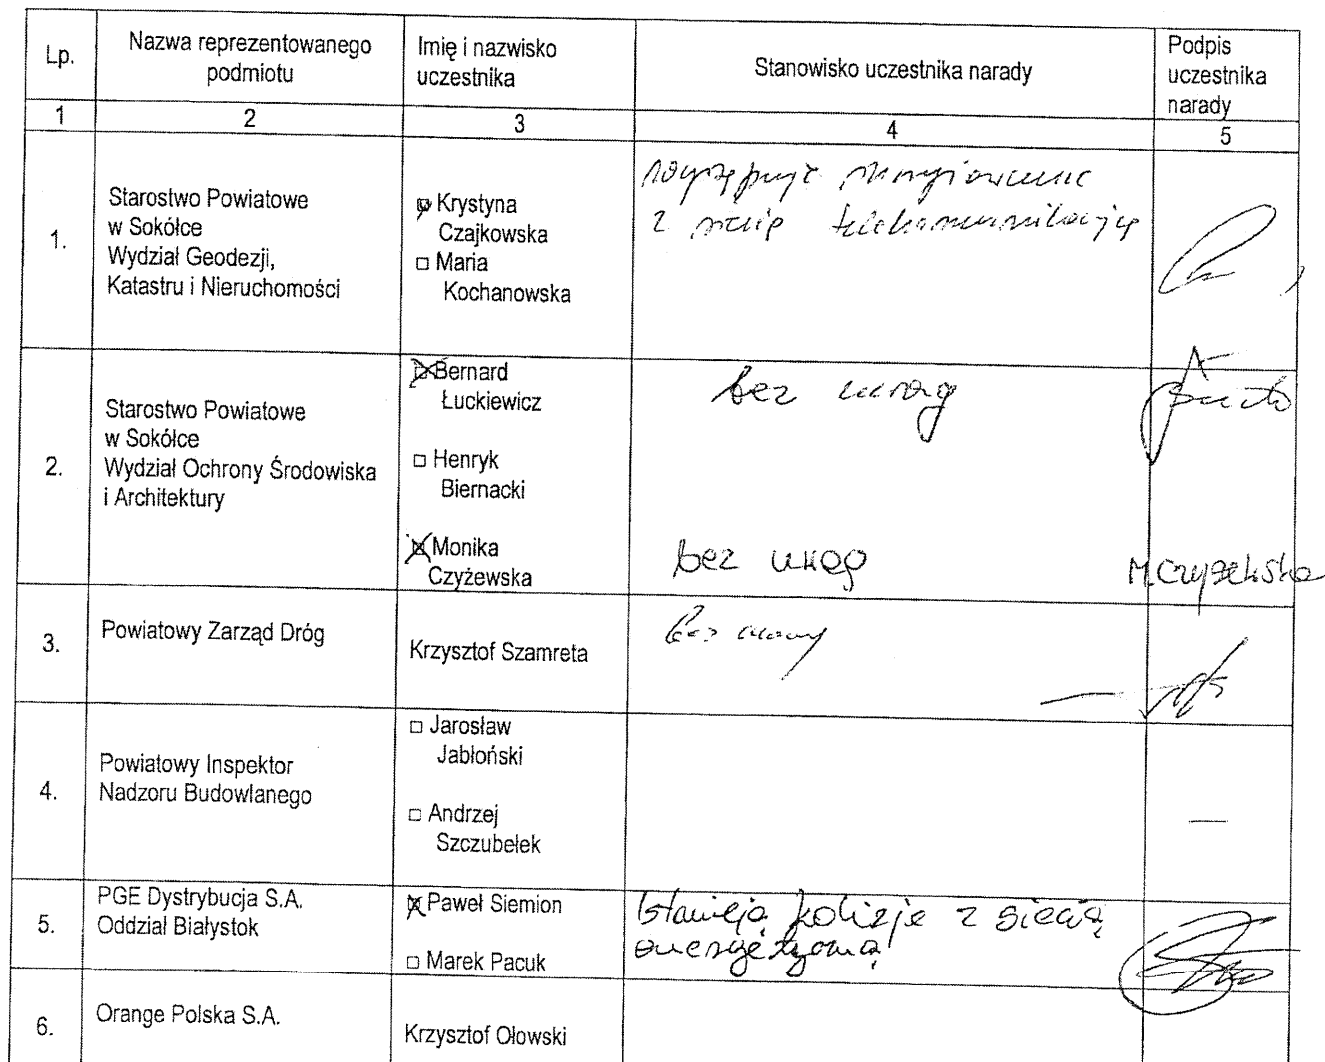 Lp.
Nazwa reprezentowanego
podmiotu
Imię i nazwisko
uczestnika
Stanowisko uczestnika narady
Podpis
uczestnika
narady
1
2
3
4
5
1.
Starostwo Powiatowe
w Sokółce
Wydział Geodezji,
Katastru i Nieruchomości
Krystyna
Czajkowska
□ Maria
Kochanowska
występuje skrzyżowanie
z siecią telekomunikacyjną
2.
Starostwo Powiatowe
w Sokółce
Wydział Ochrony Środowiska
i Architektury
Bernard
Łuckiewicz
□ Henryk
Biernacki
Monika
Czyżewska
bez uwag
bez uwag
M.Czyżewska
3.
Powiatowy Zarząd Dróg
Krzysztof Szamreta
Bez uwag
4.
Powiatowy Inspektor
Nadzoru Budowlanego
□ Jarosław
Jabłoński
□ Andrzej
Szczubełek
—
5.
PGE Dystrybucja S.A.
Oddział Białystok
Paweł Siemion
□ Marek Pacuk
Istnieją kolizje z siecią
energetyczną
6.
Orange Polska S.A.
Krzysztof Ołowski